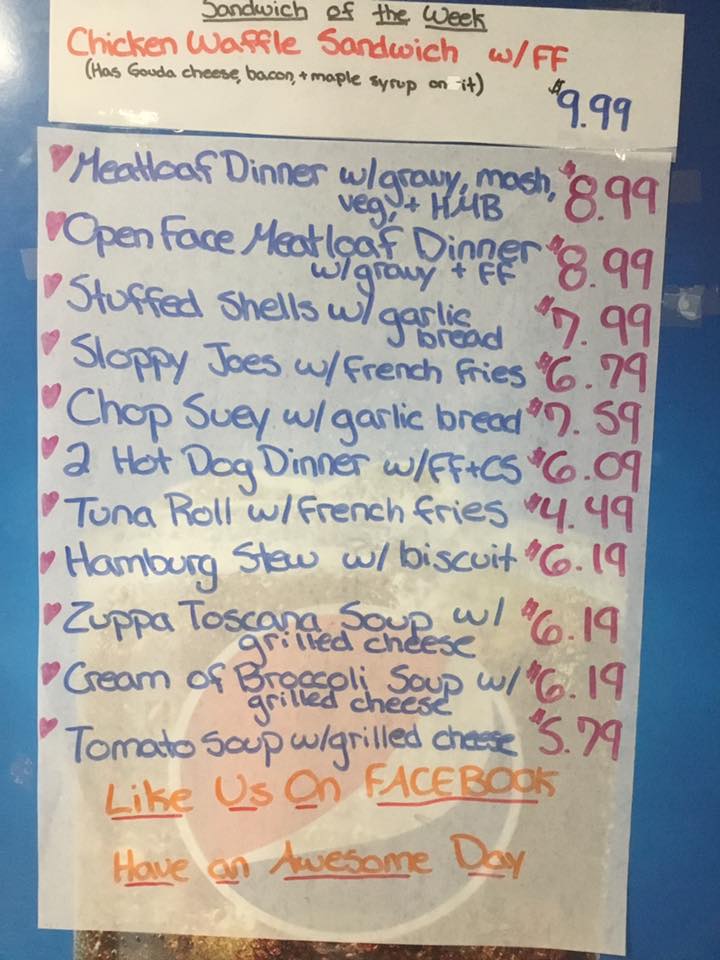 Sandwich of the Week
Chicken Waffle Sandwich w/FF
(Has Gouda cheese, bacon, + maple syrup on it)
$9.99
Meatloaf Dinner w/gravy, mash, $8.99
veg, + HMB
Open Face Meatloaf Dinner $8.99
w/gravy + FF
Stuffed Shells w/ garlic $7.99
bread
Sloppy Joes w/French fries $6.79
Chop Suey w/garlic bread $7.59
2 Hot Dog Dinner w/FF+CS $6.09
Tuna Roll w/French fries $4.49
Hamburg Stew w/ biscuit $6.19
Zuppa Toscana Soup w/ $6.19
grilled cheese
Cream of Broccoli Soup w/ $6.19
grilled cheese
Tomato Soup w/grilled cheese $5.79
Like Us On FACEBOOK
Have an Awesome Day